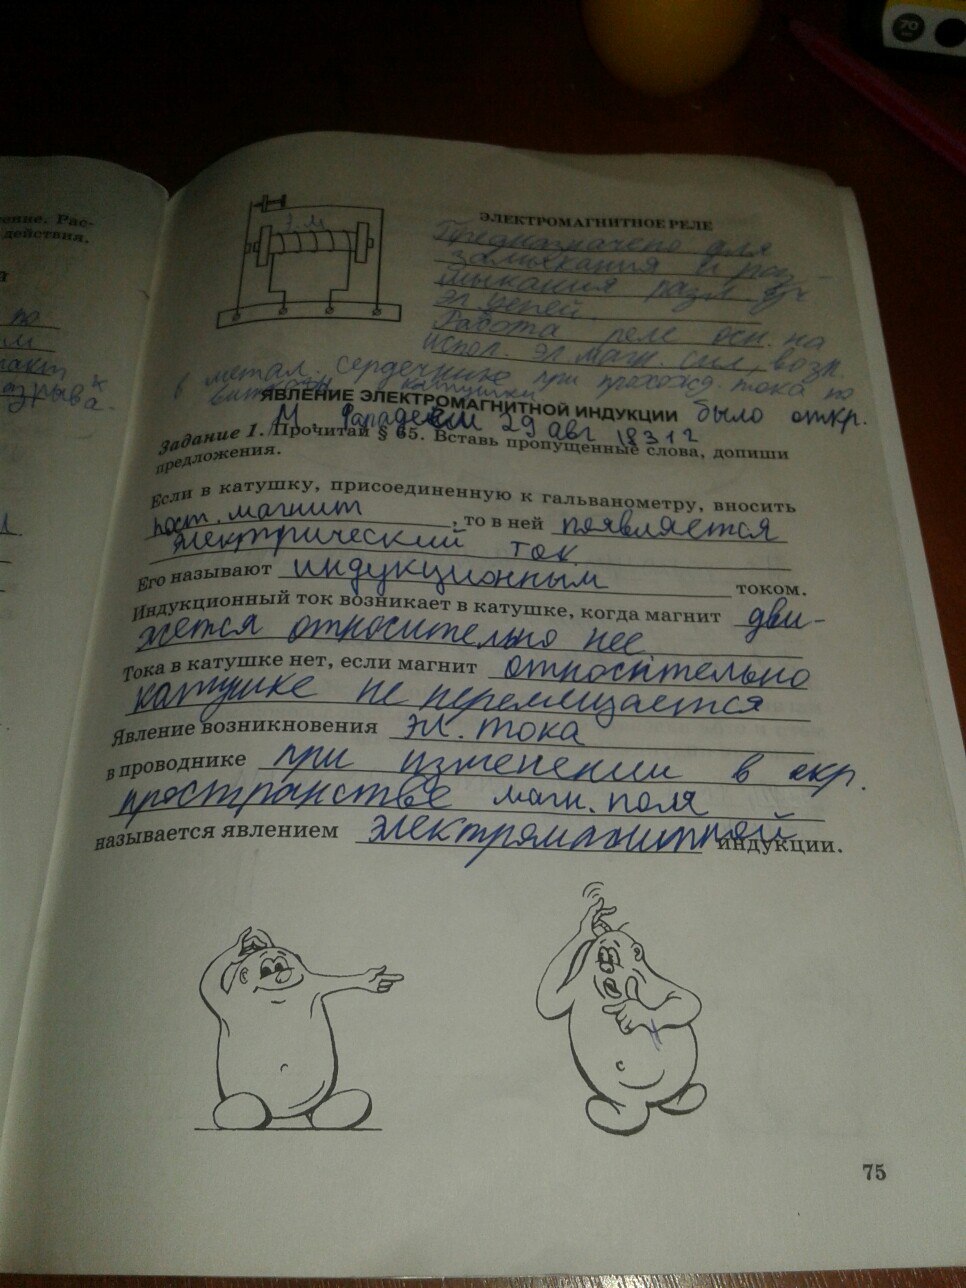 70
ение. Рас-
действия.
а
по
ЭЛЕКТРОМАГНИТНОЕ РЕЛЕ
Предназначено для
замыкания и раз-
мыкания
эл цепей.
Работа реле осн. на
испол. эл магн. сил, возн.
в метал. сердечнике при прохожд тока по
виткам катушки
ЯВЛЕНИЕ ЭЛЕКТРОМАГНИТНОЙ ИНДУКЦИИ было откр.
М. Фарадеем 29 авг 1831 г
Задание 1. Прочитай § 65. Вставь пропущенные слова, допиши
предложения.
Если в катушку, присоединенную к гальванометру, вносить
пост. магнит, то в ней появляется
электрический ток
Его называют индукционным током.
Индукционный ток возникает в катушке, когда магнит дви-
жется относительно нее.
Тока в катушке нет, если магнит относительно
катушке не перемещается
Явление возникновения эл. тока
в проводнике при изменении в окр.
пространстве магн. поля
называется явлением электромагнитной индукции.
75